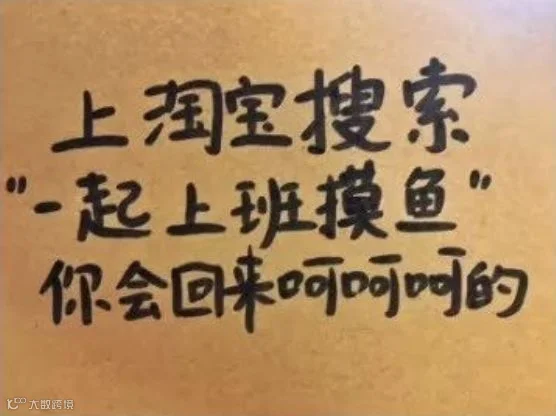 上淘宝搜索
"一起上班摸鱼"
你会回来呵呵呵的
大数跨境